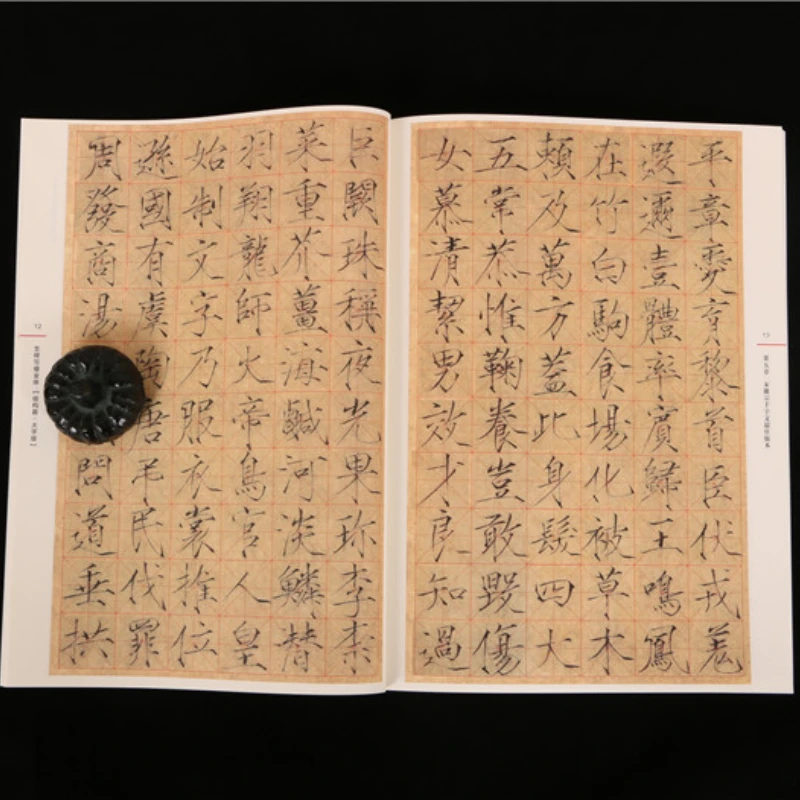 12
巨闕珠稱夜光果珍李柰
菜重芥薑海鹹河淡鱗潛
羽翔龍師火帝鳥官人皇
始制文字乃服衣裳推位
遜國有虞陶唐弔民伐罪
周發商湯問道垂拱
13
平章愛育黎首臣伏戎羌
遐邇壹體率賓歸王鳴鳳
在竹白駒食場化被草木
賴及萬方蓋此身髮四大
五常恭惟鞠養豈敢毀傷
女慕清絜男效才良知過